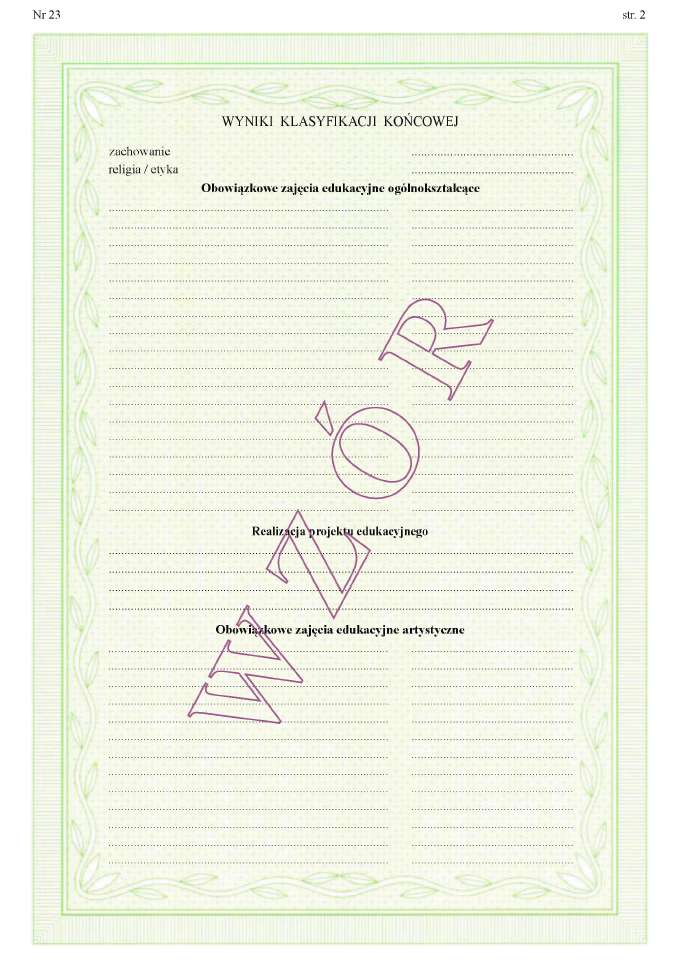 Nr 23
str. 2
WYNIKI KLASYFIKACJI KOŃCOWEJ
zachowanie
religia / etyka
Obowiązkowe zajęcia edukacyjne ogólnokształcące
Realizacja projektu edukacyjnego
Obowiązkowe zajęcia edukacyjne artystyczne
WZÓR